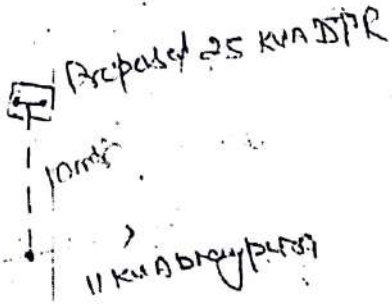 Proposed 25 KVA DTR
10mts
11 KVA